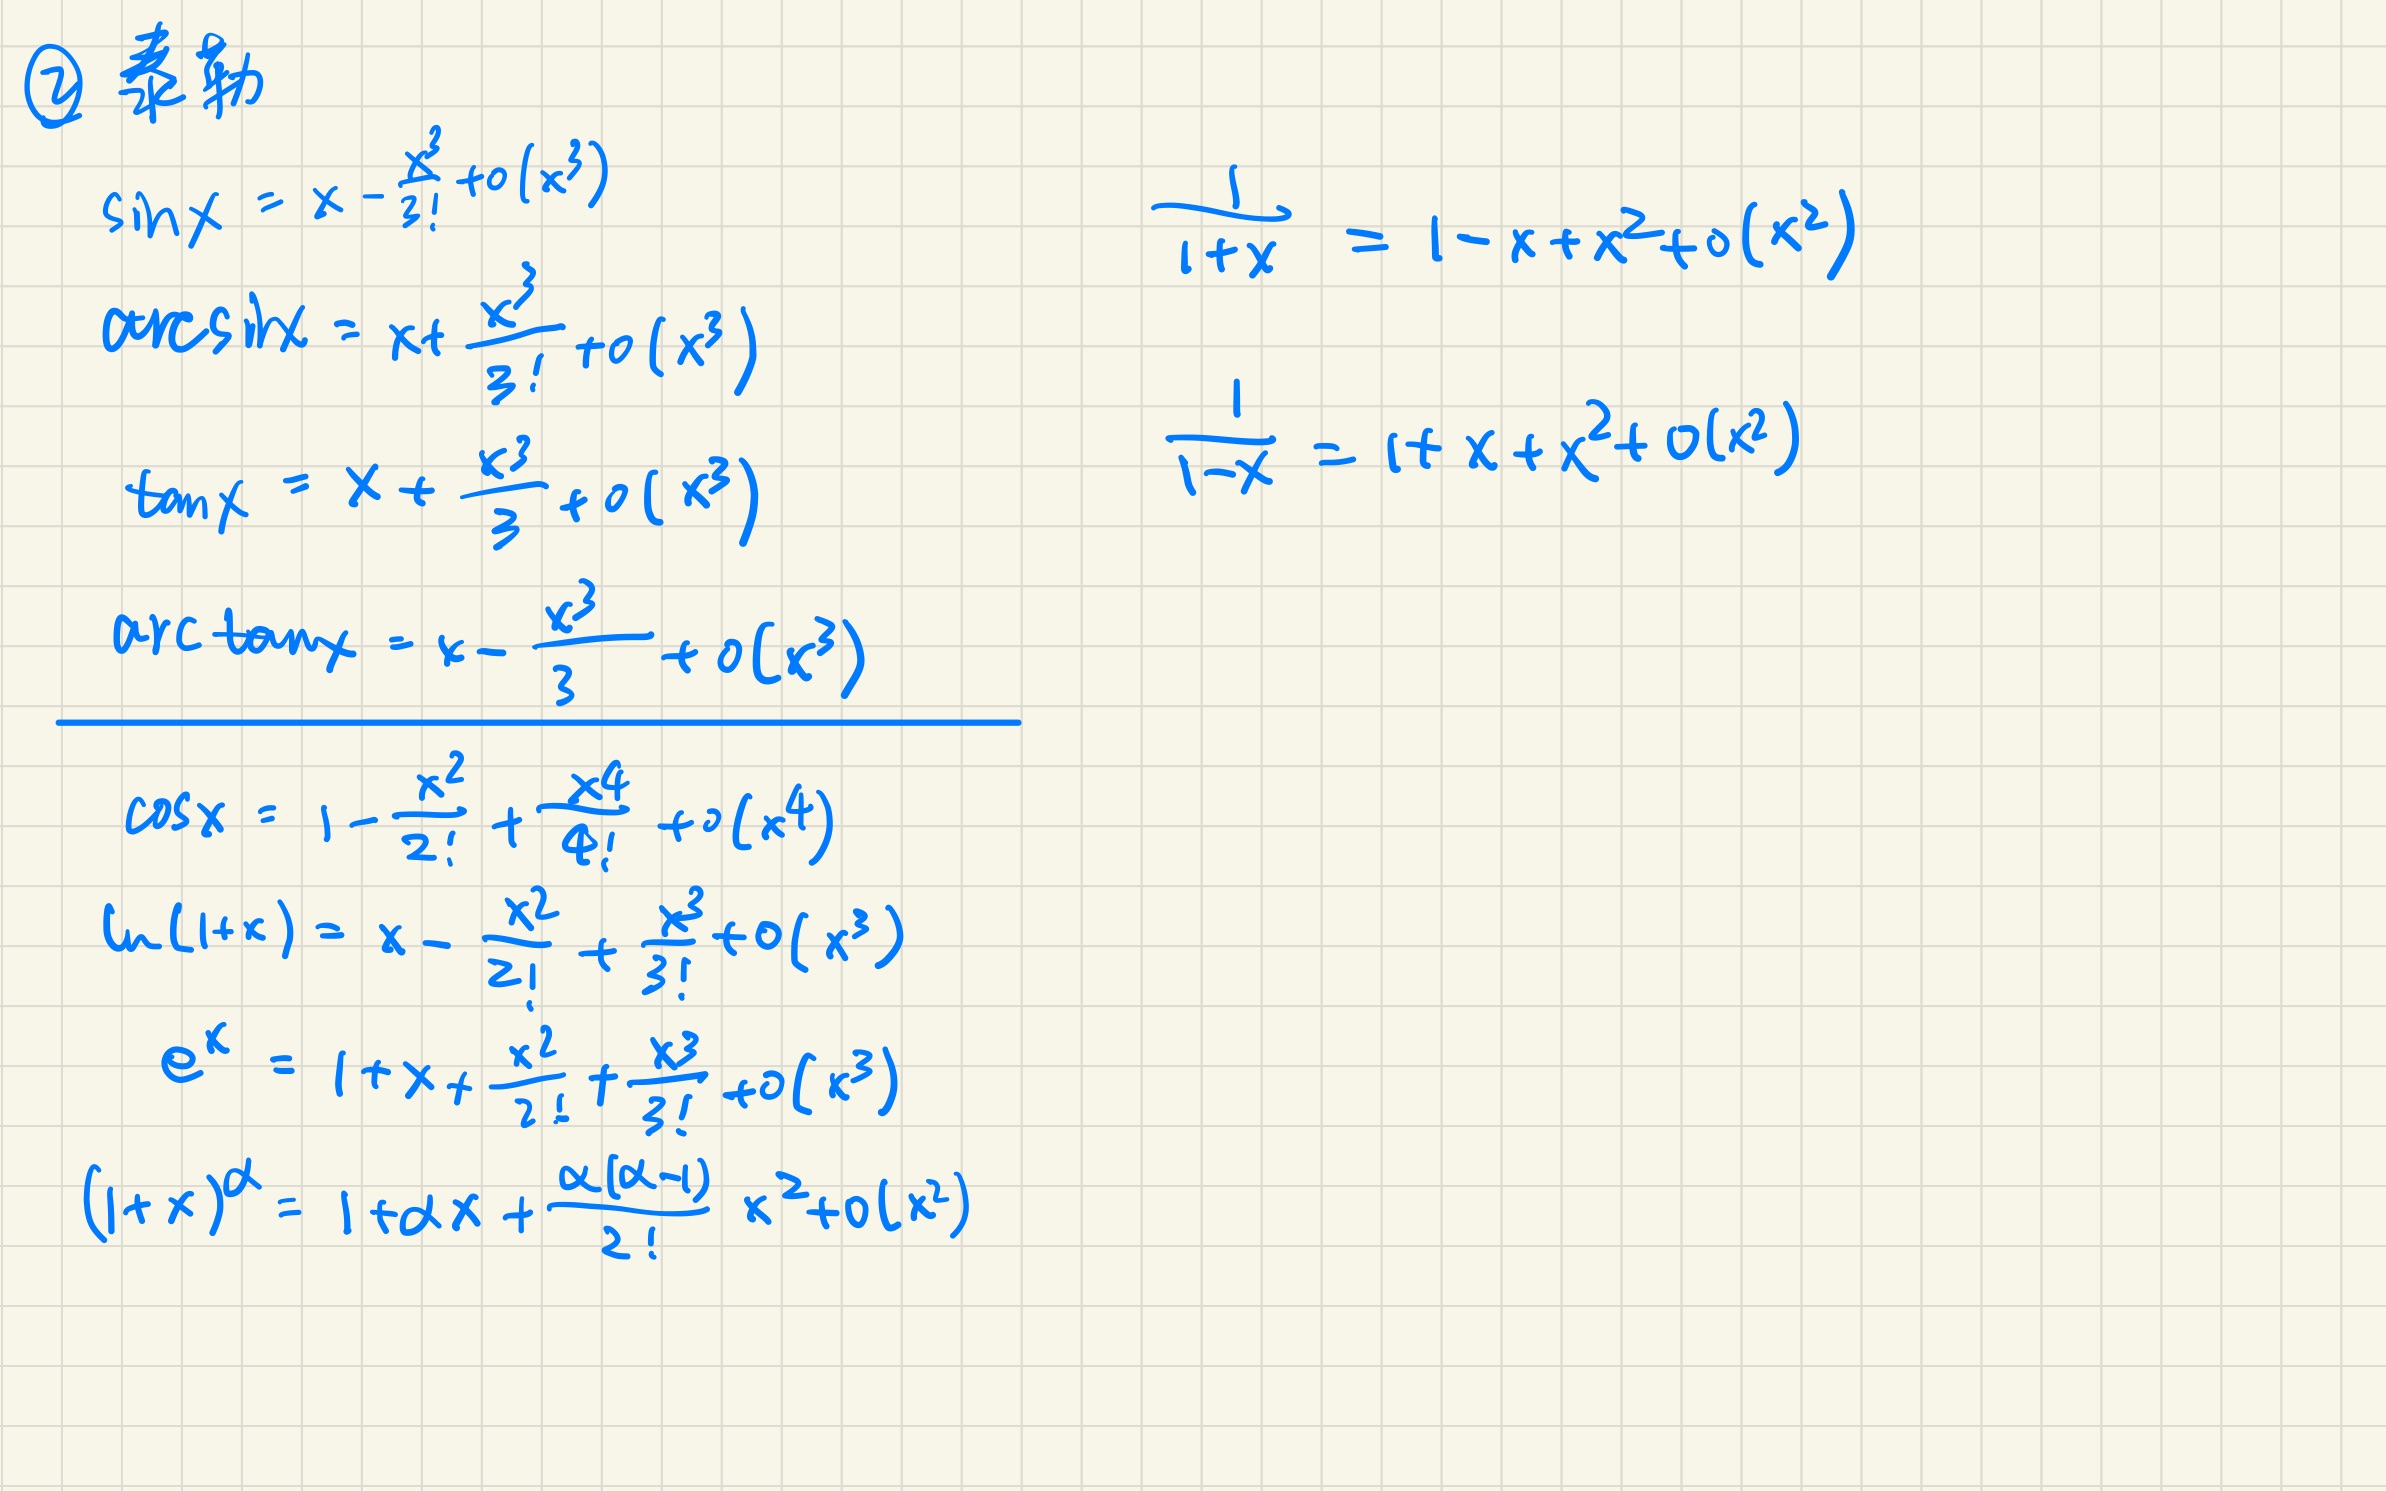 ② 泰勒
sinx = x - x³/3! + o(x³)
arcsinx = x + x³/3! + o(x³)
tanx = x + x³/3 + o(x³)
arctanx = x - x³/3 + o(x³)
cosx = 1 - x²/2! + x⁴/4! + o(x⁴)
ln(1+x) = x - x²/2! + x³/3! + o(x³)
eˣ = 1 + x + x²/2! + x³/3! + o(x³)
(1+x)^α = 1 + αx + α(α-1)/2! x² + o(x²)
1/(1+x) = 1 - x + x² + o(x²)
1/(1-x) = 1 + x + x² + o(x²)